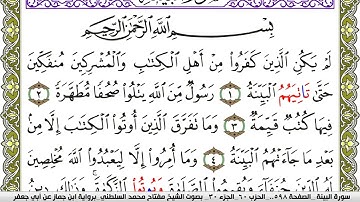 بِسْمِ اللَّهِ الرَّحْمَٰنِ الرَّحِيمِ
لَمْ يَكُنِ الَّذِينَ كَفَرُوا مِنْ أَهْلِ الْكِتَٰبِ وَالْمُشْرِكِينَ مُنفَكِّينَ
حَتَّىٰ تَاتِيَهُمُ الْبَيِّنَةُ ١ رَسُولٌ مِّنَ اللَّهِ يَتْلُوا صُحُفًا مُّطَهَّرَةً ٢
فِيهَا كُتُبٌ قَيِّمَةٌ ٣ وَمَا تَفَرَّقَ الَّذِينَ أُوتُوا الْكِتَٰبَ إِلَّا مِنْ
بَعْدِ مَا جَآءَتْهُمُ الْبَيِّنَةُ ٤ وَمَآ أُمِرُوٓا إِلَّا لِيَعْبُدُوا اللَّهَ مُخْلِصِينَ
وَيُوتُوا
سورة البينة_ الصفحة ٥٩٨_ الحزب ٦٠_ الجزء ٣٠_ بصوت الشيخ مفتاح محمد السلطني_ برواية ابن جماز عن أبي جعفر